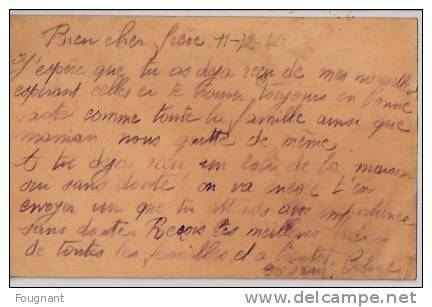 Bien cher frère 11-12-40
J'espère que tu as deja reçu de mes nouvelles
espérant celles ci te trouver toujours en bonne
santé comme toute la famille ainsi que
maman nous quitte de même
A tu deja reçu un colis de la maison
oui sans doute on va encore t'en
envoyer un que tu attends avec impatience
sans doute Reçois les meilleurs
de toutes les familles et a bientot
Fougnant
delcampe.net